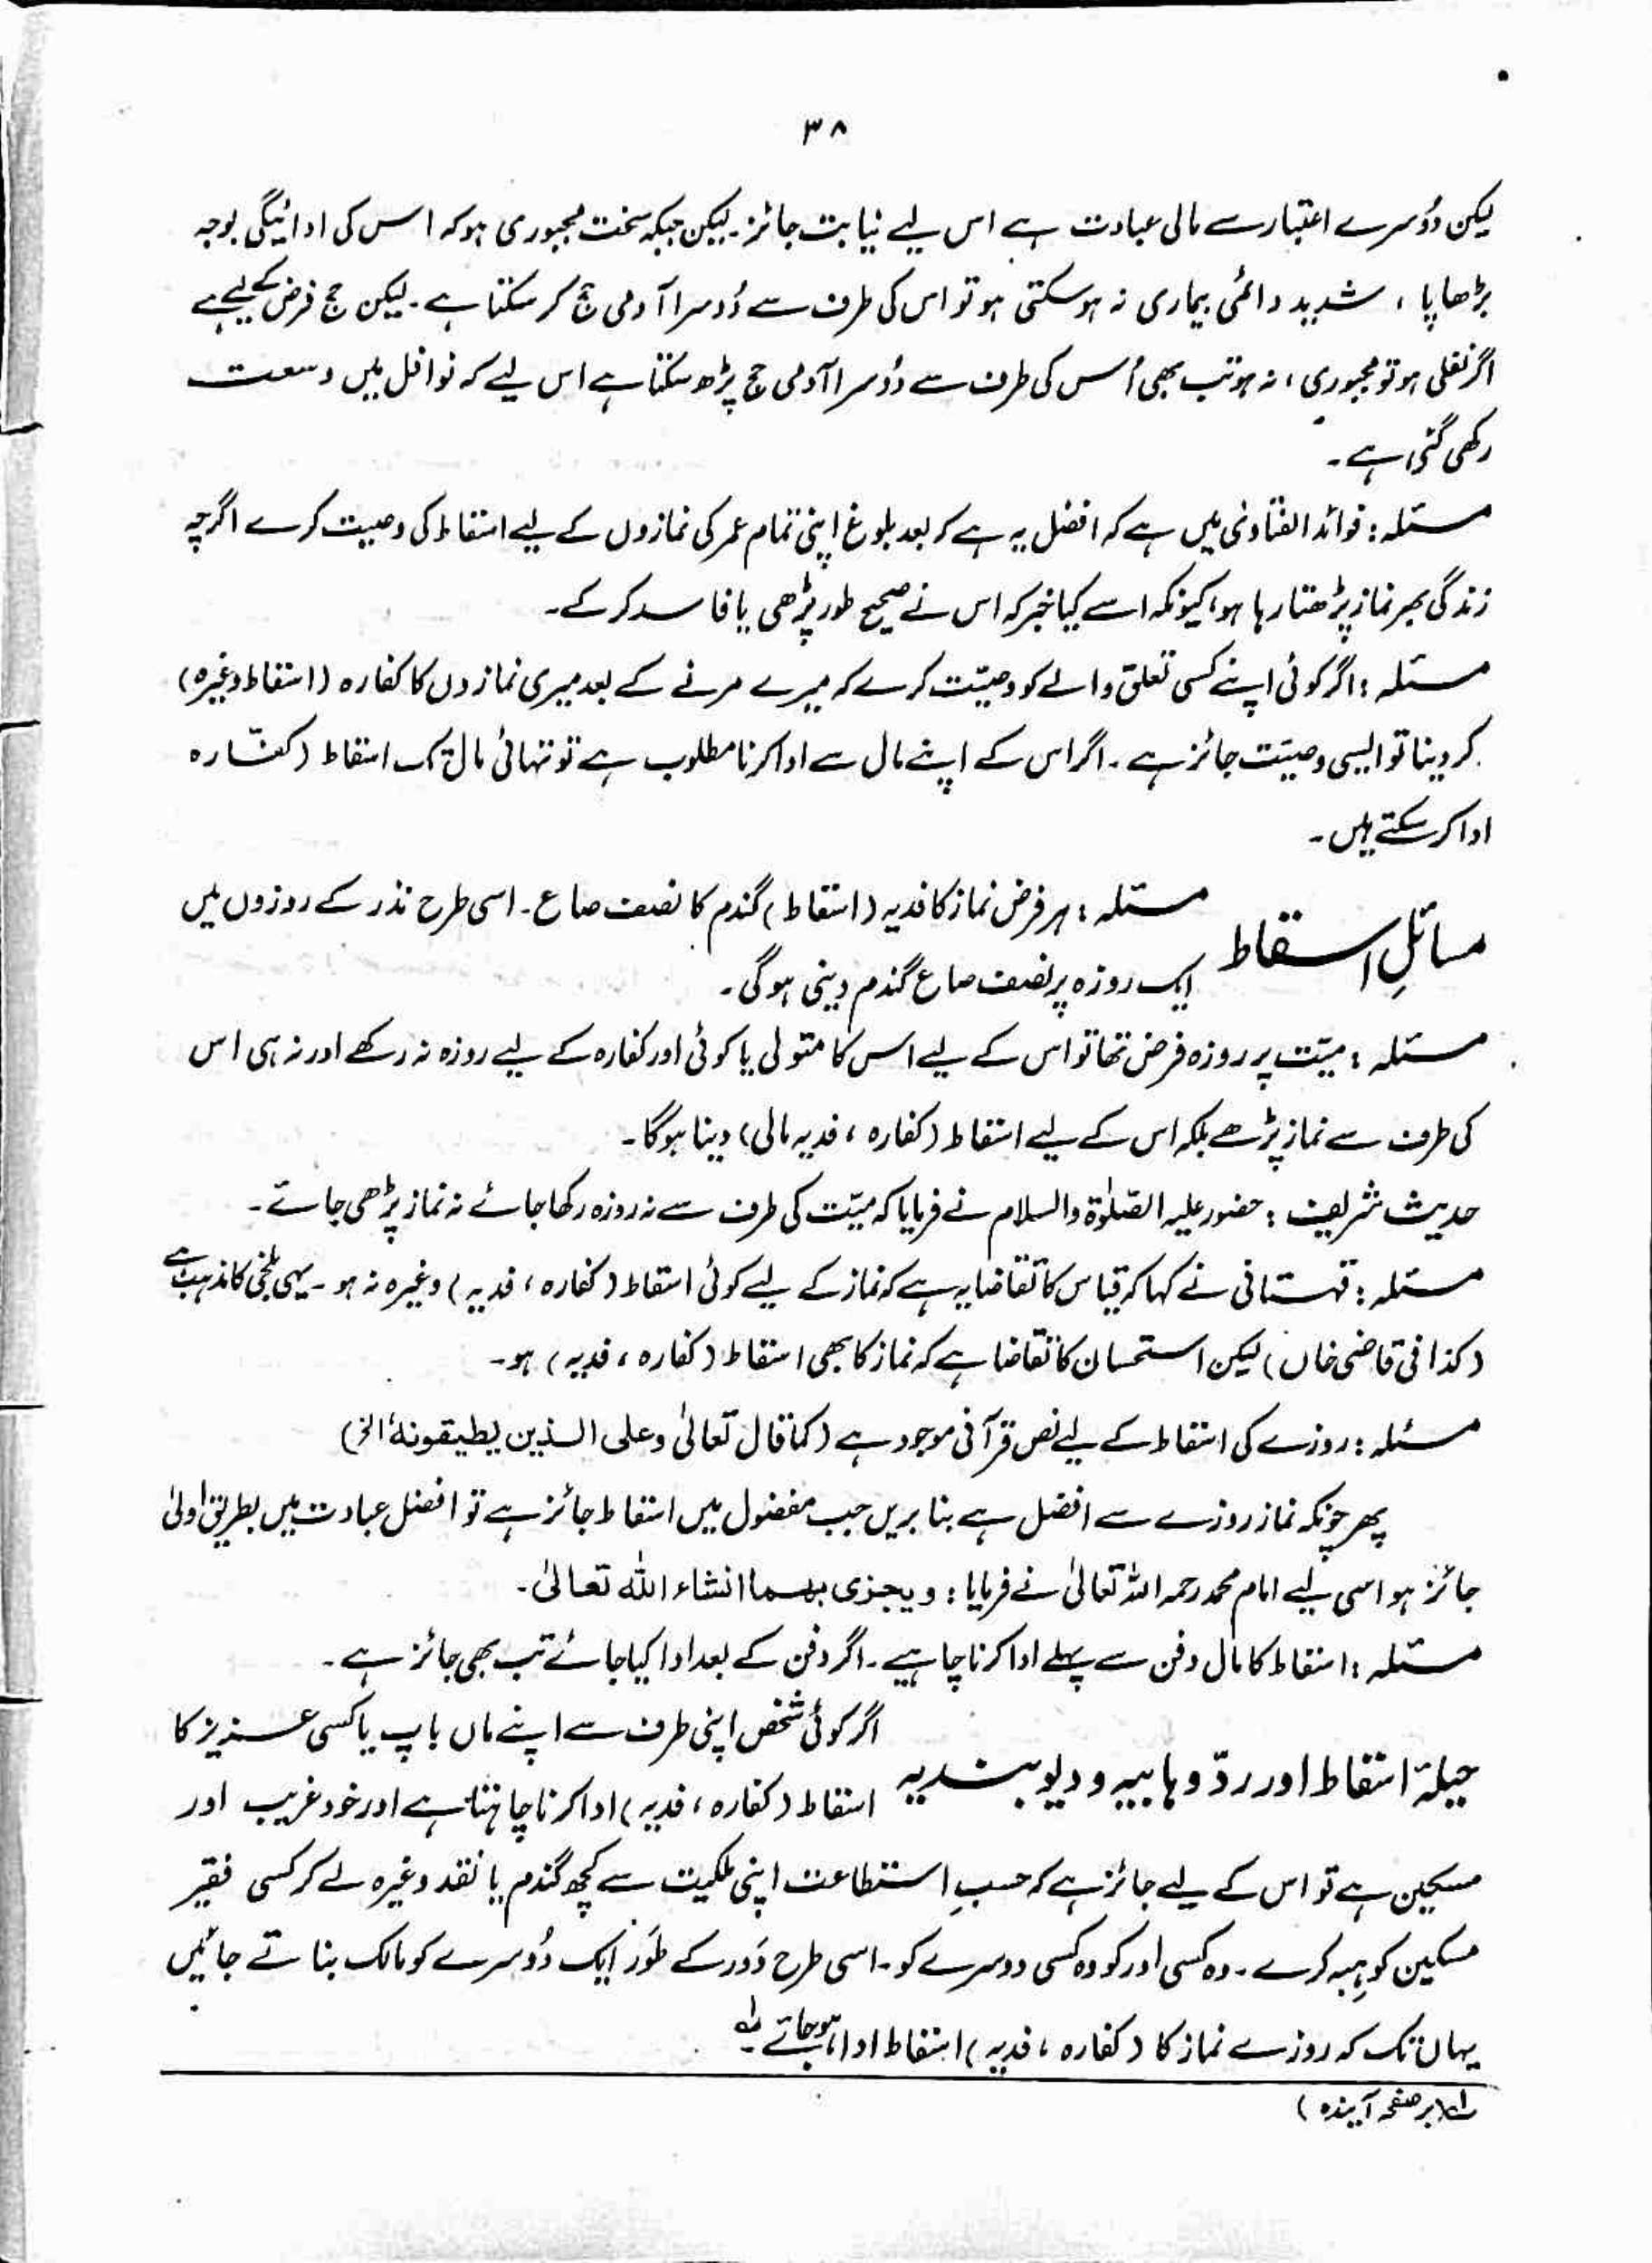 ۳۸
لیکن دُوسرے اعتبار سے مالی عبادت ہے اس لیے نیابت جائز۔ لیکن جبکہ سخت مجبوری ہو کہ اس کی ادائیگی بوجہ
بڑھاپا ، شدید دائمی بیماری نہ ہو سکتی ہو تو اس کی طرف سے دُوسرا آدمی حج کر سکتا ہے۔ لیکن حج فرض کے لیے ہے
اگر نفلی ہو تو مجبوری ، نہ ہو تب بھی اُس کی طرف سے دُوسرا آدمی حج پڑھ سکتا ہے اس لیے کہ نوافل میں وسعت
رکھی گئی ہے۔
مسئلہ : فوائد الفتاویٰ میں ہے کہ افضل یہ ہے کہ بعد بلوغ اپنی تمام عمر کی نمازوں کے لیے اسقاط کی وصیت کرے اگرچہ
زندگی بھر نماز پڑھتا رہا ہو، کیونکہ اسے کیا خبر کہ اس نے صحیح طور پڑھی یا فاسد کر کے۔
مسئلہ : اگر کوئی اپنے کسی تعلق والے کو وصیّت کرے کہ میرے مرنے کے بعد میری نمازوں کا کفارہ (اسقاط وغیرہ)
کر دینا تو ایسی وصیّت جائز ہے۔ اگر اس کے اپنے مال سے ادا کرنا مطلوب ہے تو تہائی مال تک اسقاط (کفّارہ
ادا کر سکتے ہیں۔
مسائلِ اسقاط
مسئلہ : ہر فرض نماز کا فدیہ (اسقاط) گندم کا نصف صاع۔ اسی طرح نذر کے روزوں میں
ایک روزہ پر نصف صاع گندم دینی ہوگی۔
مسئلہ : میّت پر روزہ فرض تھا تو اس کے لیے اس کا متولی یا کوئی اور کفارہ کے لیے روزہ نہ رکھے اور نہ ہی اس
کی طرف سے نماز پڑھے بلکہ اس کے لیے اسقاط (کفارہ ، فدیہ مالی) دینا ہوگا۔
حدیث شریف : حضور علیہ الصّلوٰۃ والسلام نے فرمایا کہ میّت کی طرف سے نہ روزہ رکھا جائے نہ نماز پڑھی جائے۔
مسئلہ : قہستانی نے کہا کہ قیاس کا تقاضا یہ ہے کہ نماز کے لیے کوئی اسقاط (کفارہ ، فدیہ) وغیرہ نہ ہو۔ یہی بلخی کا مذہب ہے
(کذا فی قاضی خاں) لیکن استحسان کا تقاضا ہے کہ نماز کا بھی اسقاط (کفارہ ، فدیہ) ہو۔
مسئلہ : روزے کی اسقاط کے لیے نص قرآنی موجود ہے (کما قال تعالیٰ وعلی الذین یطیقونہٗ الخ)
پھر چونکہ نماز روزے سے افضل ہے بنا بریں جب مفضول میں اسقاط جائز ہے تو افضل عبادت میں بطریق اولیٰ
جائز ہو اسی لیے امام محمد رحمہ اللہ تعالیٰ نے فرمایا : ویجزی بھما انشاء اللہ تعالیٰ۔
مسئلہ : اسقاط کا مال دفن سے پہلے ادا کرنا چاہیے۔ اگر دفن کے بعد ادا کیا جائے تب بھی جائز ہے۔
حیلۂ اسقاط اور ردّ وہابیہ و دیوبندیہ
اگر کوئی شخص اپنی طرف سے اپنے ماں باپ یا کسی عزیز کا
اسقاط (کفارہ ، فدیہ) ادا کرنا چاہتا ہے اور خود غریب اور
مسکین ہے تو اس کے لیے جائز ہے کہ حسبِ استطاعت اپنی ملکیت سے کچھ گندم یا نقد وغیرہ لے کر کسی فقیر
مسکین کو ہبہ کرے۔ وہ کسی اور کو وہ کسی دوسرے کو۔ اسی طرح دَور کے طَور ایک دُوسرے کو مالک بناتے جائیں
یہاں تک کہ روزے نماز کا (کفارہ ، فدیہ) اسقاط ادا ہو جائے۔ لہ
لہ (بر صفحہ آیندہ)